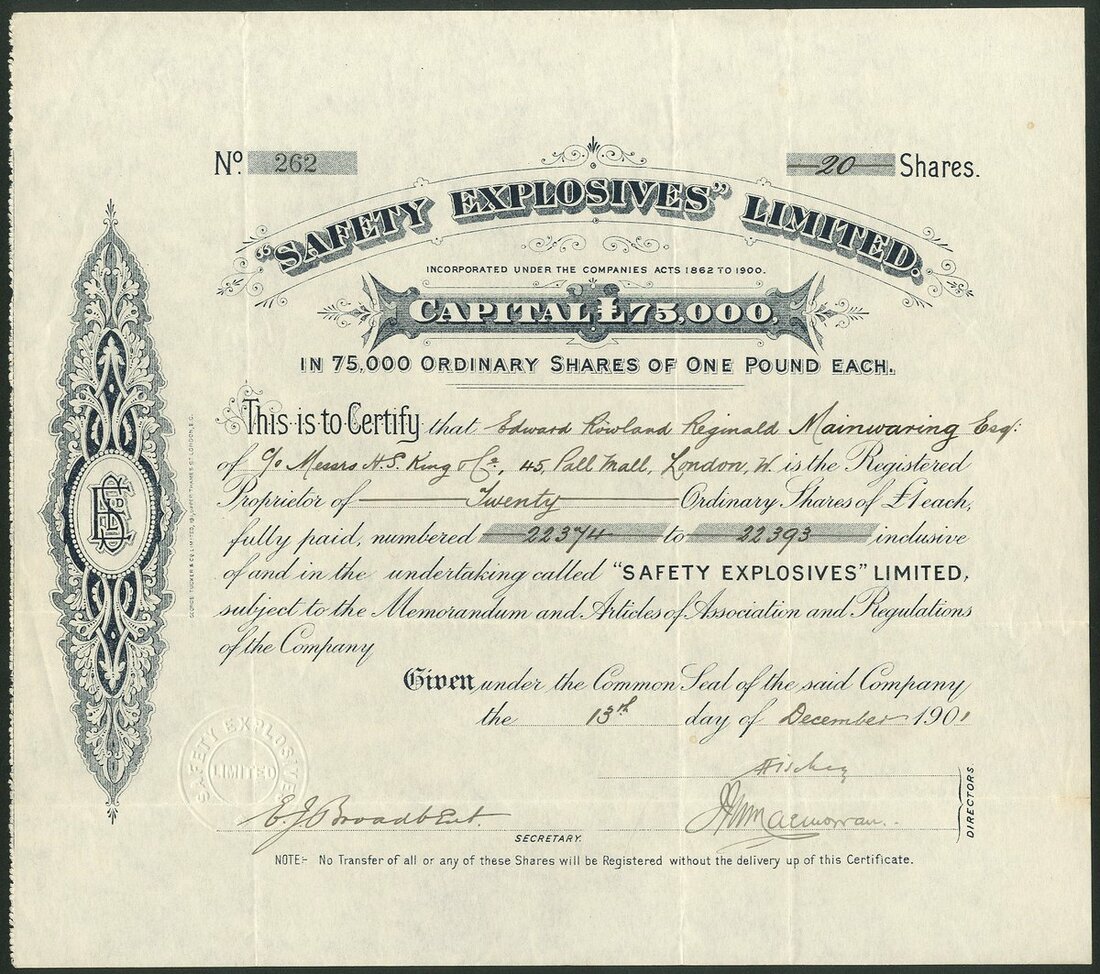 No. 262
20 Shares.
"SAFETY EXPLOSIVES" LIMITED.
INCORPORATED UNDER THE COMPANIES ACTS 1862 TO 1900.
CAPITAL £75,000,
IN 75,000 ORDINARY SHARES OF ONE POUND EACH.
This is to Certify that Edward Rowland Reginald Mainwaring Esq:
of c/o Messrs H. S. King & Co., 45, Pall Mall, London, W. is the Registered
Proprietor of Twenty Ordinary Shares of £1 each,
fully paid, numbered 22374 to 22393 inclusive
of and in the undertaking called "SAFETY EXPLOSIVES" LIMITED,
subject to the Memorandum and Articles of Association and Regulations
of the Company
Given under the Common Seal of the said Company
the 13th day of December 1901
SAFETY EXPLOSIVES
LIMITED
E. J. Broadbent.
SECRETARY.
DIRECTORS
NOTE:- No Transfer of all or any of these Shares will be Registered without the delivery up of this Certificate.